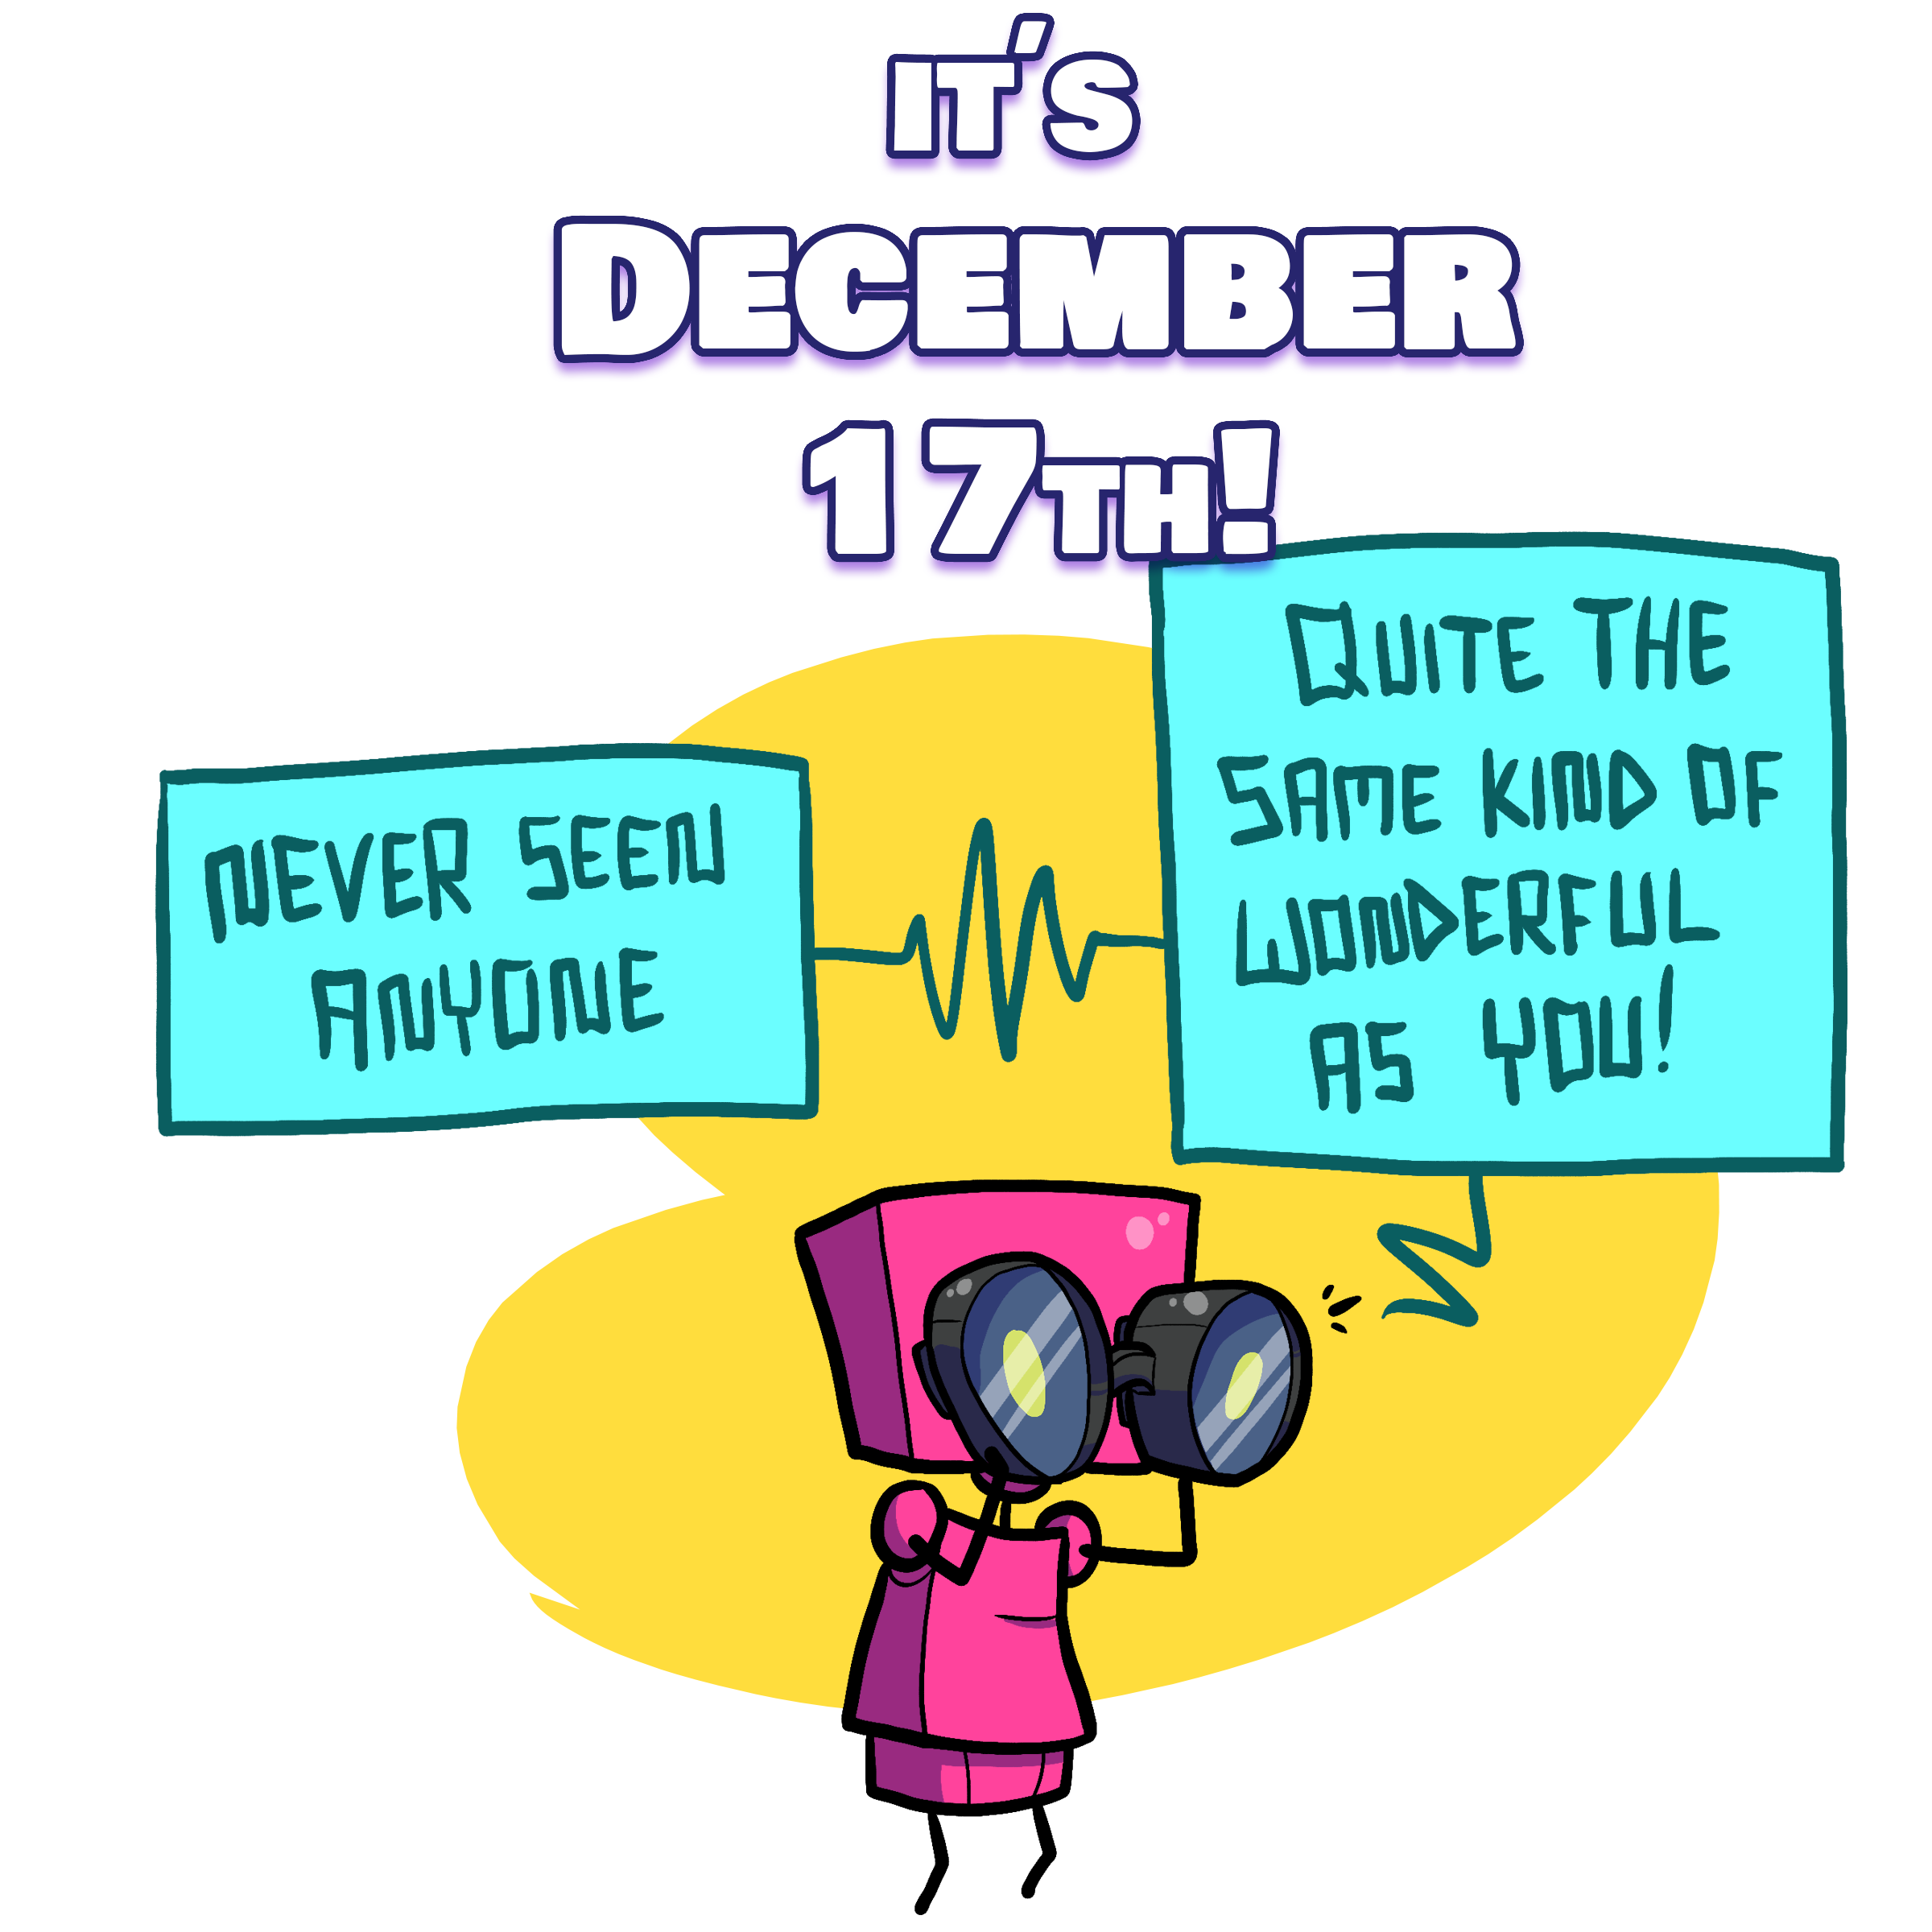 IT'S
DECEMBER
17TH!
NEVER SEEN
ANYONE
QUITE THE
SAME KIND OF
WONDERFUL
AS YOU!